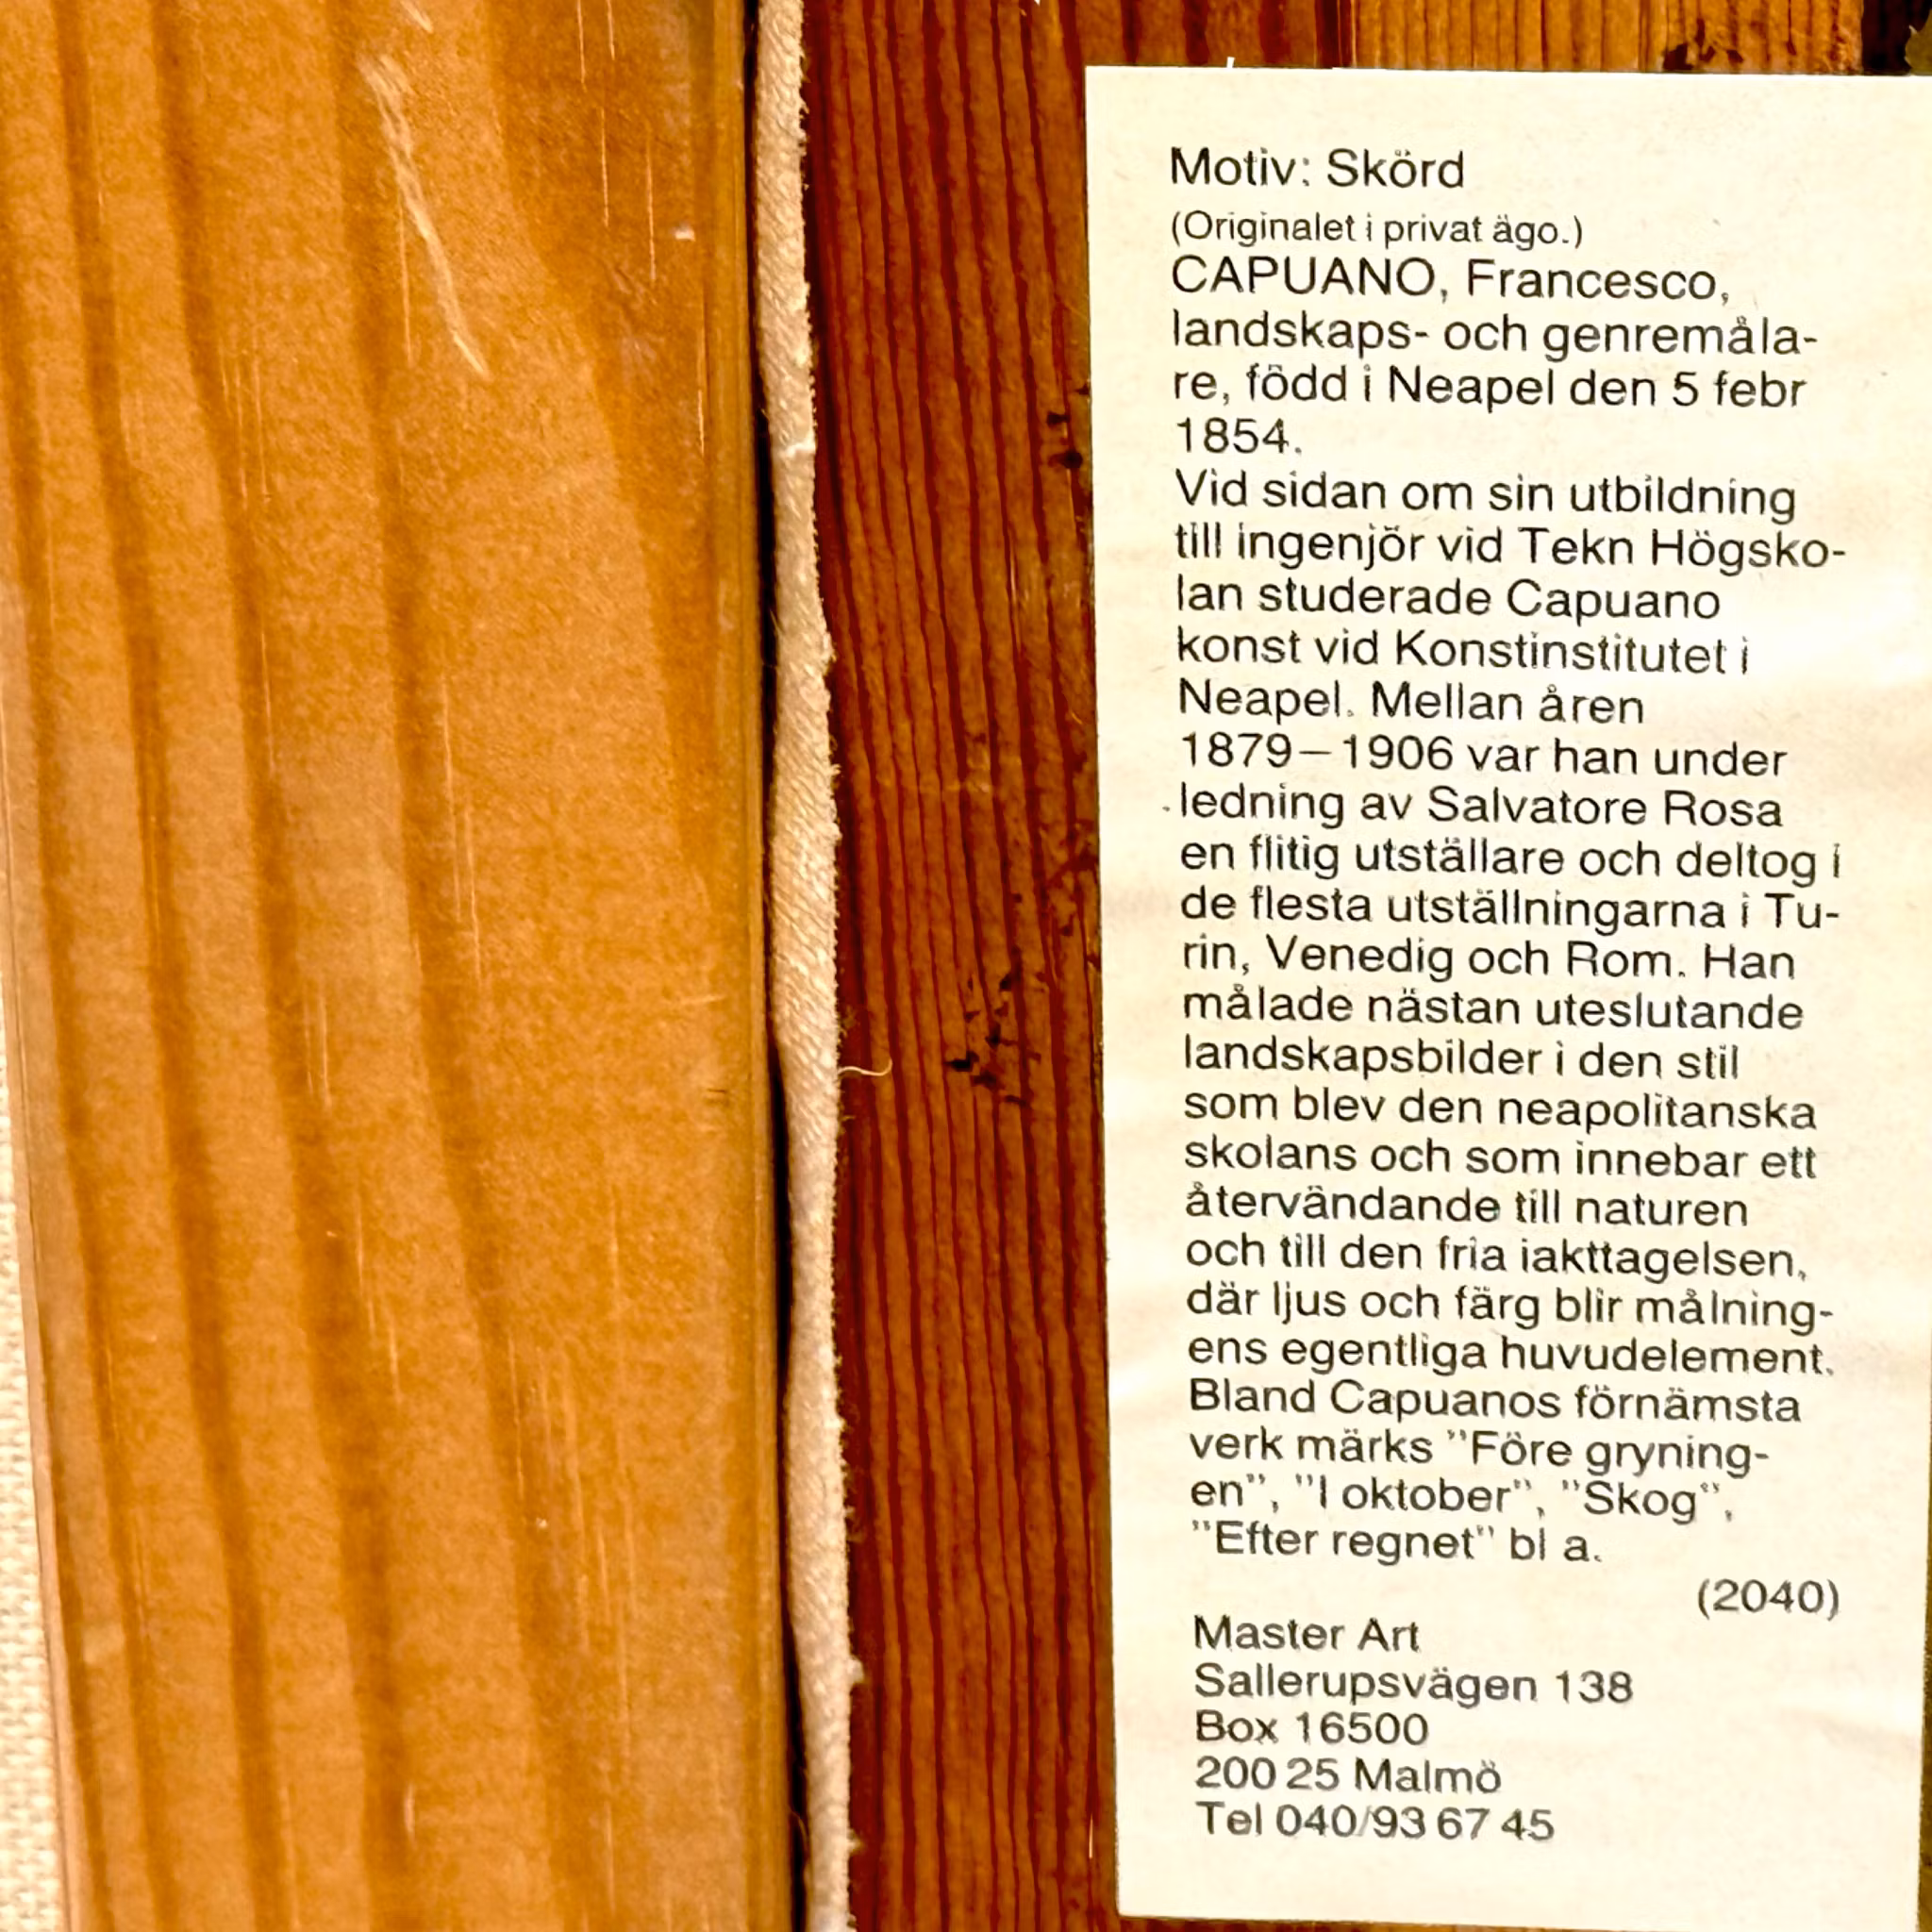 Motiv: Skörd
(Originalet i privat ägo.)
CAPUANO, Francesco,
landskaps- och genremåla-
re, född i Neapel den 5 febr
1854.
Vid sidan om sin utbildning
till ingenjör vid Tekn Högsko-
lan studerade Capuano
konst vid Konstinstitutet i
Neapel. Mellan åren
1879–1906 var han under
ledning av Salvatore Rosa
en flitig utställare och deltog i
de flesta utställningarna i Tu-
rin, Venedig och Rom. Han
målade nästan uteslutande
landskapsbilder i den stil
som blev den neapolitanska
skolans och som innebar ett
återvändande till naturen
och till den fria iakttagelsen,
där ljus och färg blir målning-
ens egentliga huvudelement.
Bland Capuanos förnämsta
verk märks "Före gryning-
en", "I oktober", "Skog",
"Efter regnet" bl a.
(2040)
Master Art
Sallerupsvägen 138
Box 16500
200 25 Malmö
Tel 040/93 67 45